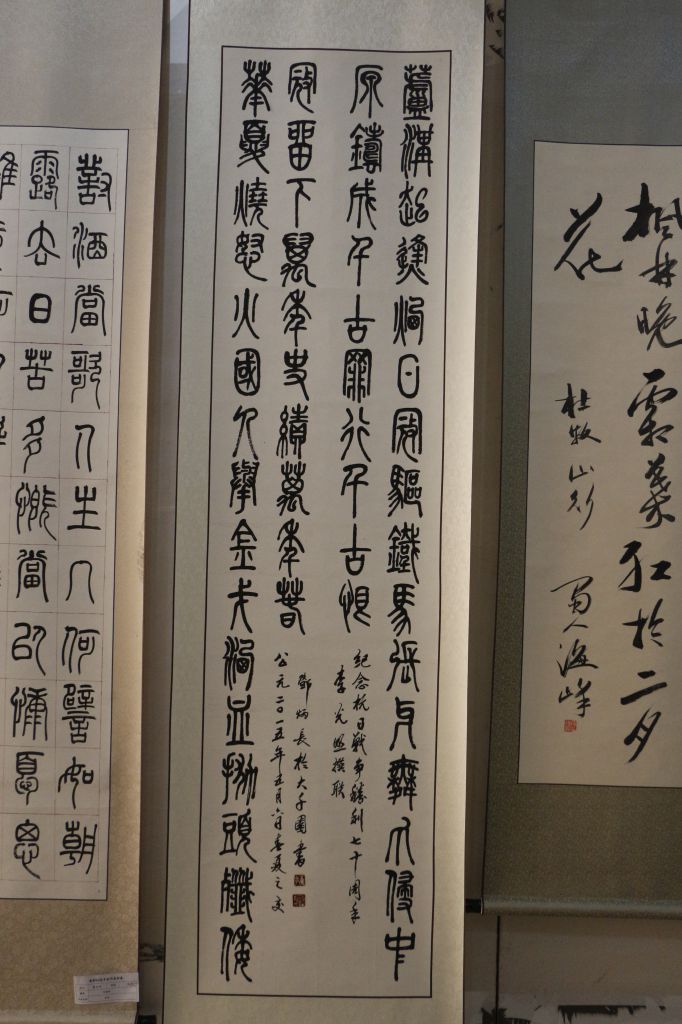 楓林晚霜葉紅於二月
花
杜牧山行 蜀人海峰
蘆溝起烽烟日寇驅鐵馬張牙舞爪侵中
原鑄成千古罪行千古恨
紀念抗日戰爭勝利七十周年
李光照撰联
寇留下萬年史績萬年春
華夏燒怒火國人舉金戈洒血拋頭殲倭
鄧炳長於大千園書
公元二〇一五年五月六日春夏之交
對酒當歌人生几何譬如朝
露去日苦多慨當以慷憂思
難